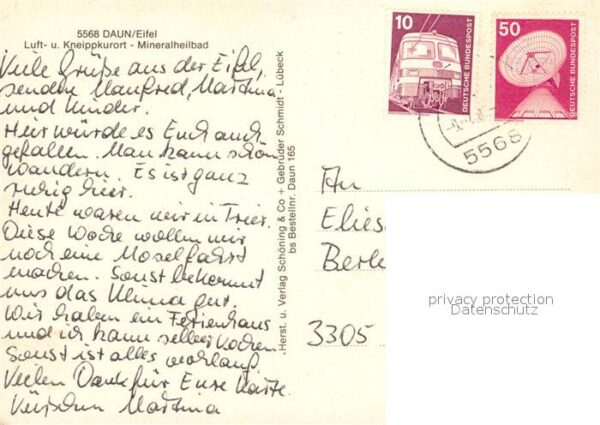 5568 DAUN/Eifel
Luft- u. Kneippkurort - Mineralheilbad
Viele Grüße aus der Eifel,
senden Manfred, Martina
und Kinder.
Hier würde es Euch auch
gefallen. Man kann schön
wandern. Es ist ganz
ruhig hier.
Heute waren wir in Trier.
Diese Woche wollen wir
noch eine Moselfahrt
machen. Sonst bekommt
uns das Klima gut.
Wir haben ein Ferienhaus
und ich kann selber kochen.
Sonst ist alles wohlauf.
Vielen Dank für Eure Karte.
Martina
Herst. u. Verlag Schöning & Co + Gebrüder Schmidt - Lübeck
bs Bestellnr. Daun 165
10
DEUTSCHE BUNDESPOST
50
DEUTSCHE BUNDESPOST
5568
An
Elies
Berle
3305
privacy protection
Datenschutz